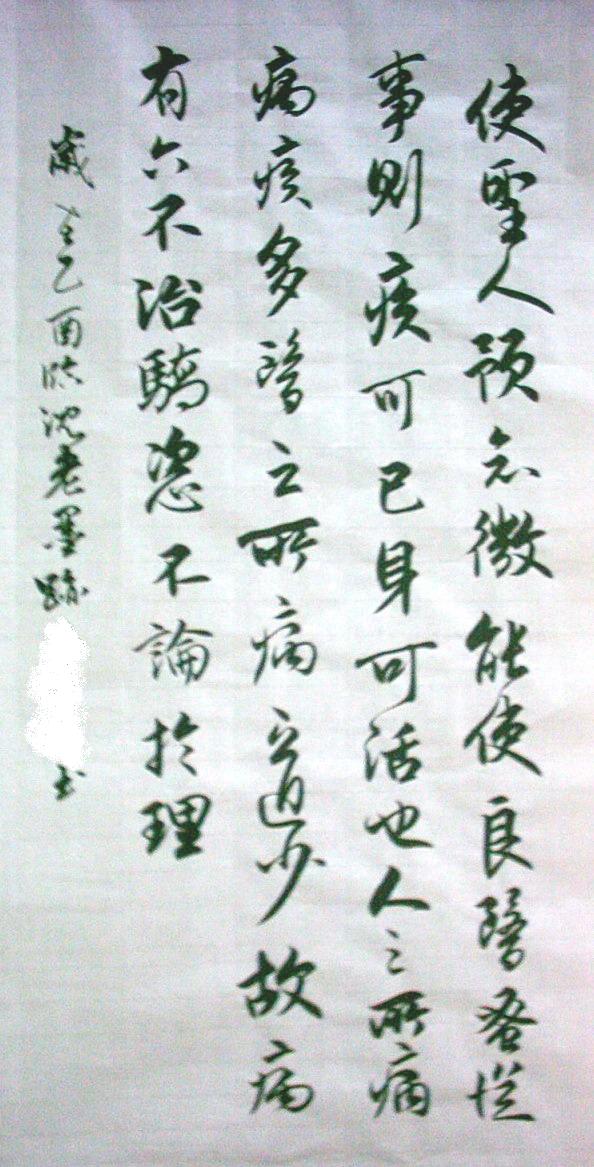 使聖人預知微能使良醫蚤從
事則疾可已身可活也人之所病
病疾多醫之所病之道少故病
有六不治驕恣不論於理
歲在乙酉臨沈老墨跡 書